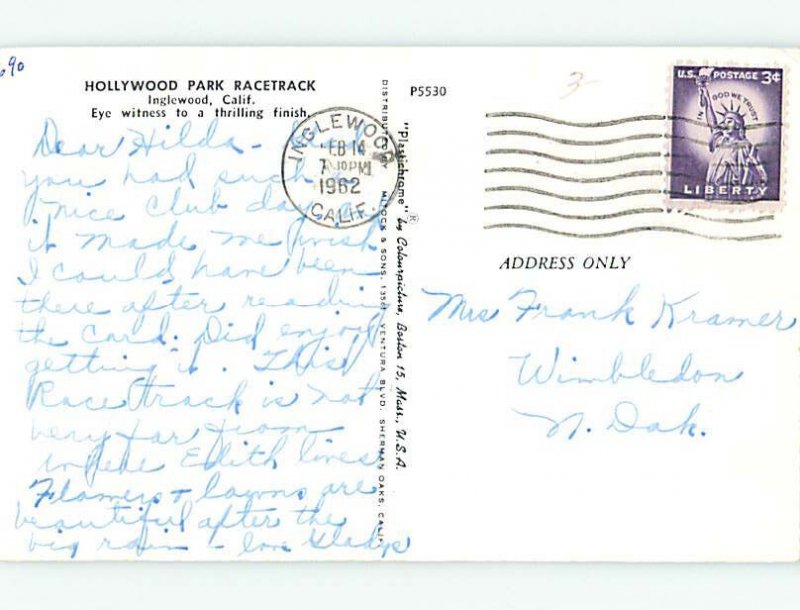 690
HOLLYWOOD PARK RACETRACK
Inglewood, Calif.
Eye witness to a thrilling finish.
Dear Hilda -
you had such a
nice Club day
it made me wish
I could have been
there after reading
the card. Did enjoy
getting it. This
Race track is not
very far from
where Edith lives.
Flowers & lawns are
beautiful after the
big rain - love Gladys
DISTRIBUTED BY MITOCK & SONS, 13561 VENTURA BLVD. SHERMAN OAKS, CALIF.
"Plastichrome" ® by Colourpicture, Boston 15, Mass., U.S.A.
P5530
3
INGLEWOOD
FEB 14
7 PM
1962
CALIF.
U.S. POSTAGE 3¢
IN GOD WE TRUST
LIBERTY
ADDRESS ONLY
Mrs Frank Kramer
Wimbledon
N. Dak.